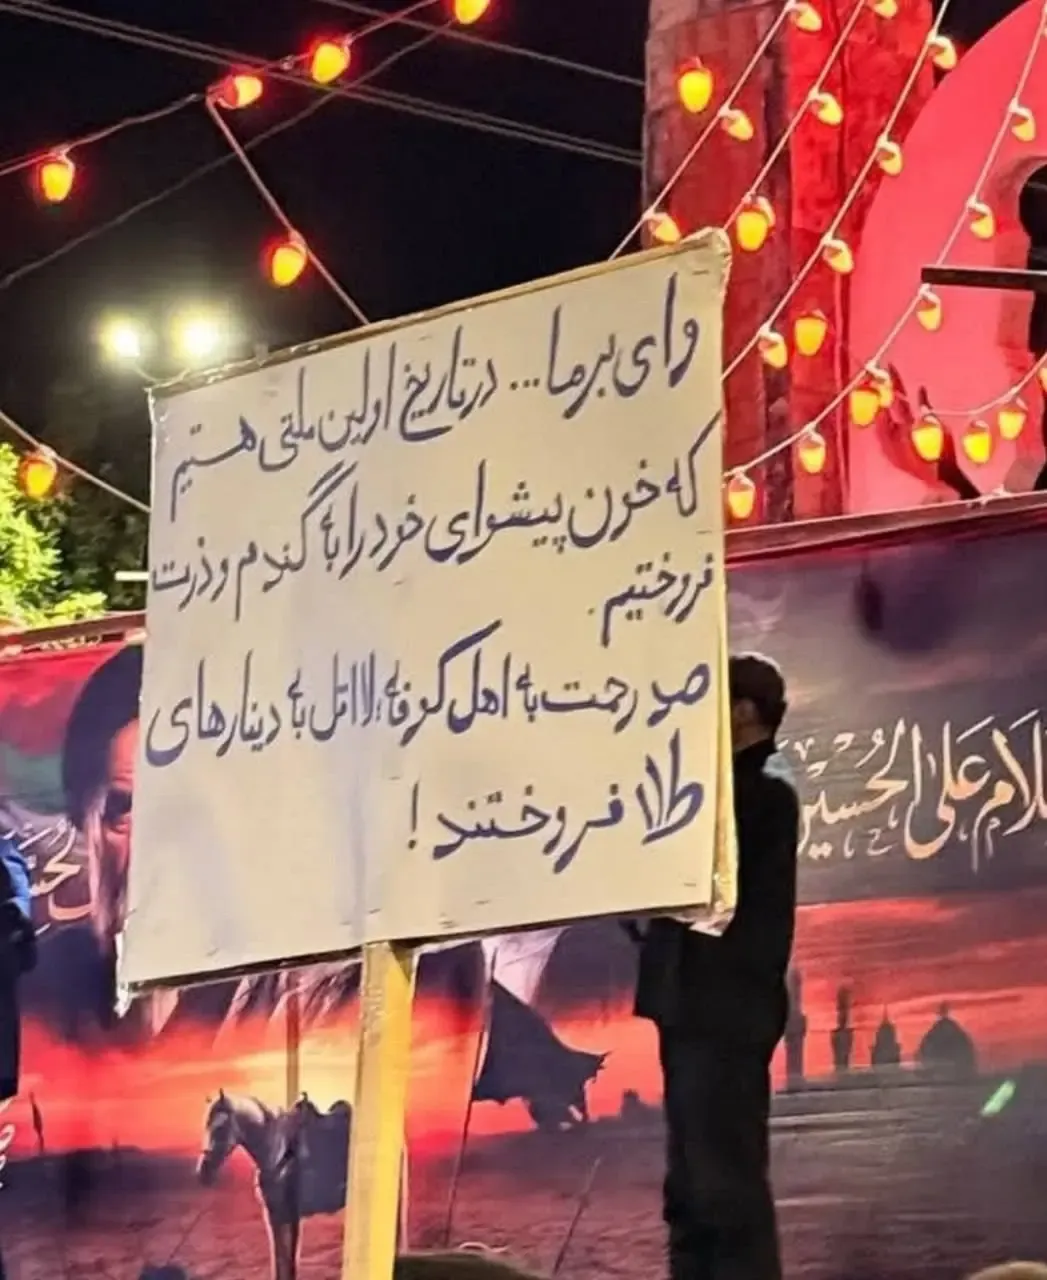 وای بر ما... در تاریخ اولین ملتی هستیم
که خون پیشوای خود را به گندم و ذرت
فروختیم.
صد رحمت به اهل کوفه، لااقل به دینارهای
طلا فروختند!
لام على الحسين